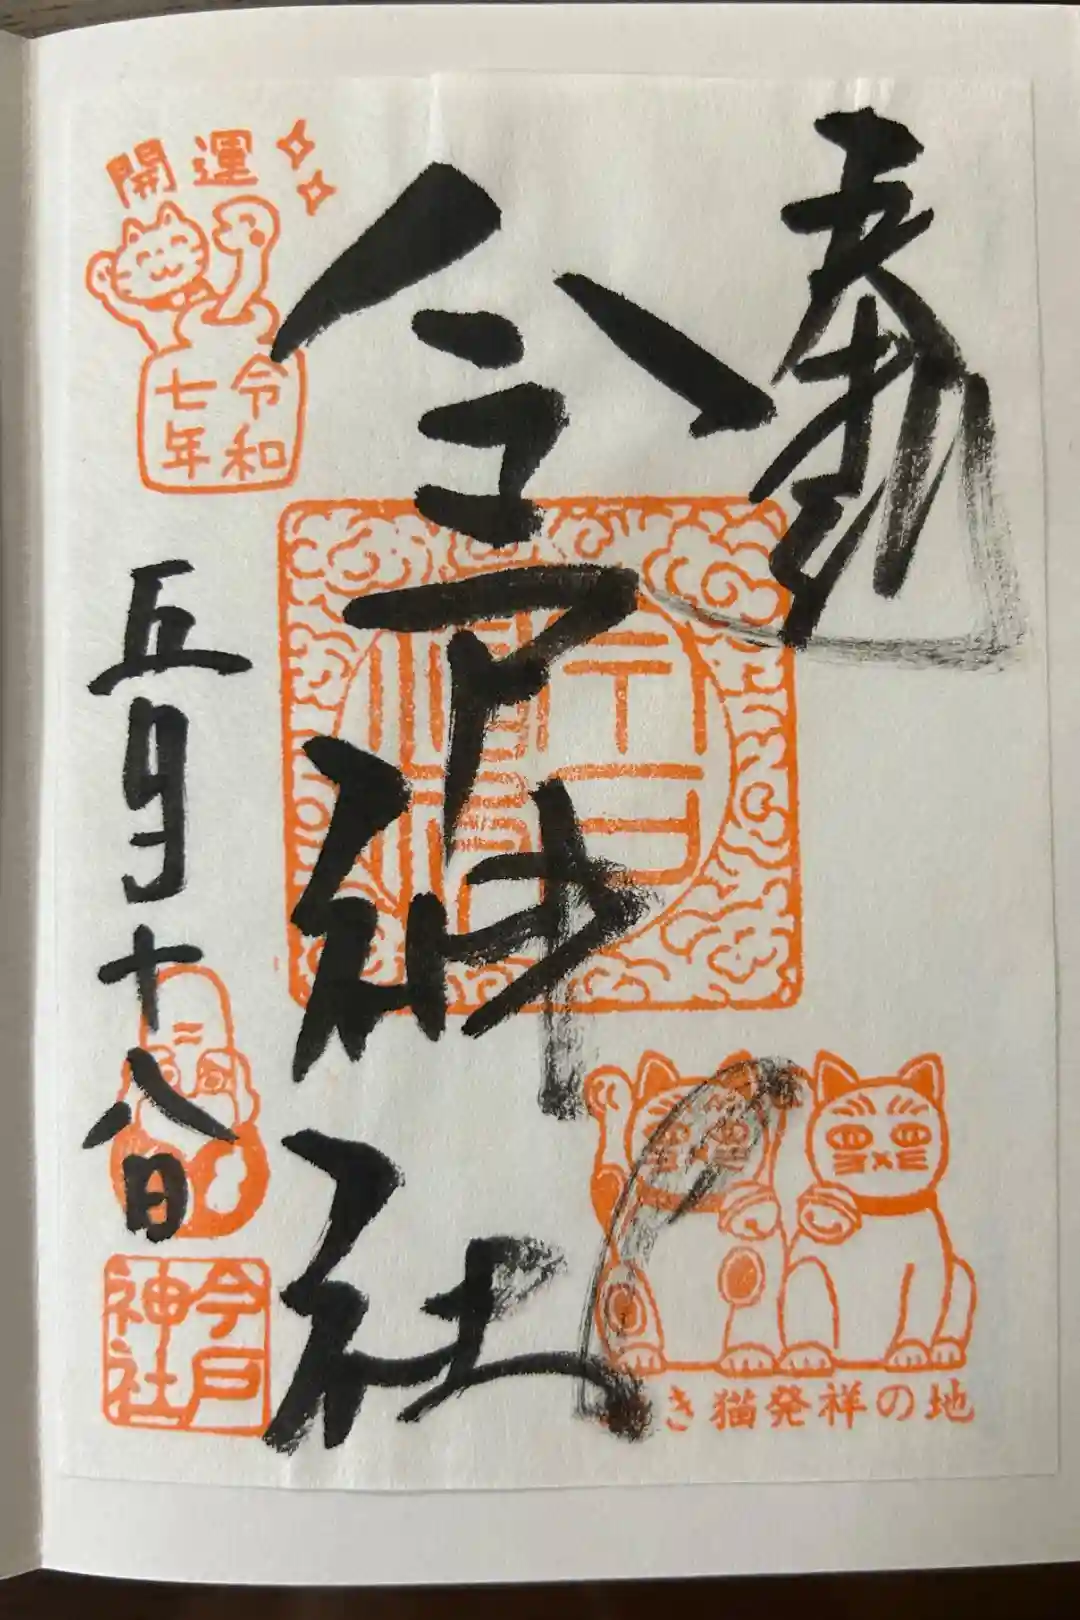 奉拝
今戸神社
開運
令和
七年
五月十八日
今戸
神社
き猫発祥の地